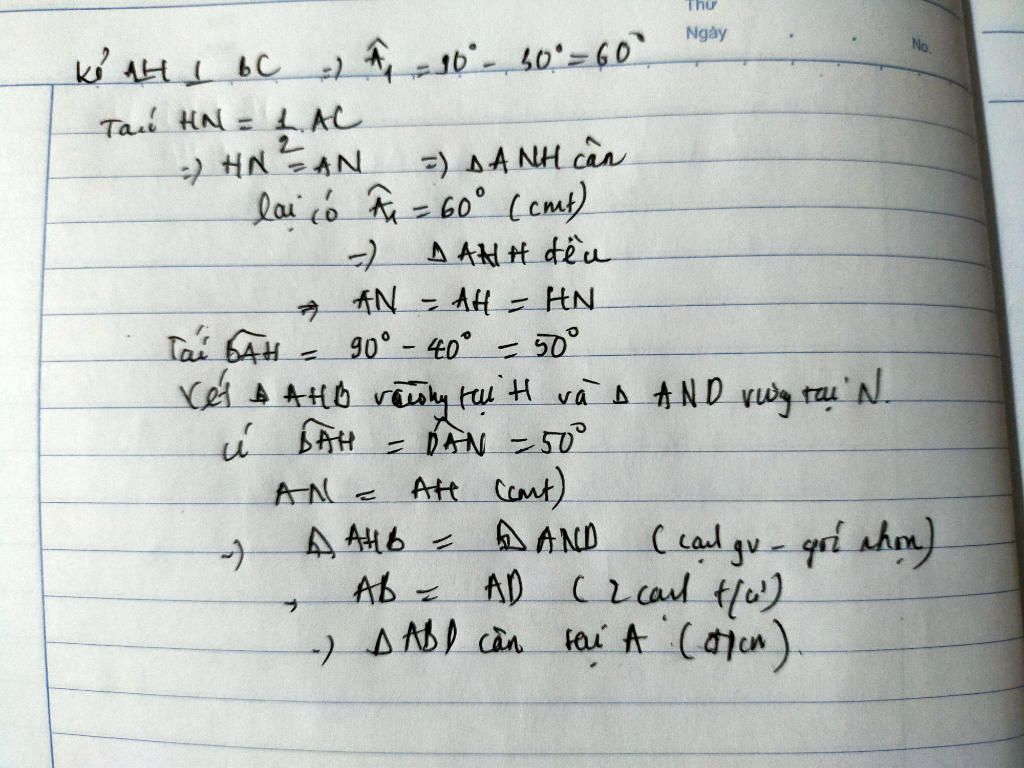 Thứ
Ngày
No.
Kẻ AH ⊥ BC => Â₁ = 90° - 30° = 60°
Ta có HN = 1/2 AC
=> HN = AN => Δ ANH cân
lại có Â₁ = 60° (cmt)
=> Δ ANH đều
=> AN = AH = HN
Ta có BAH = 90° - 40° = 50°
Xét Δ AHB vuông tại H và Δ AND vuông tại N.
có BAH = DAN = 50°
AN = AH (cmt)
=> Δ AHB = Δ AND (cạnh gv - góc nhọn)
=> AB = AD (2 cạnh t/ứ)
=> Δ ABD cân tại A (đpcm).